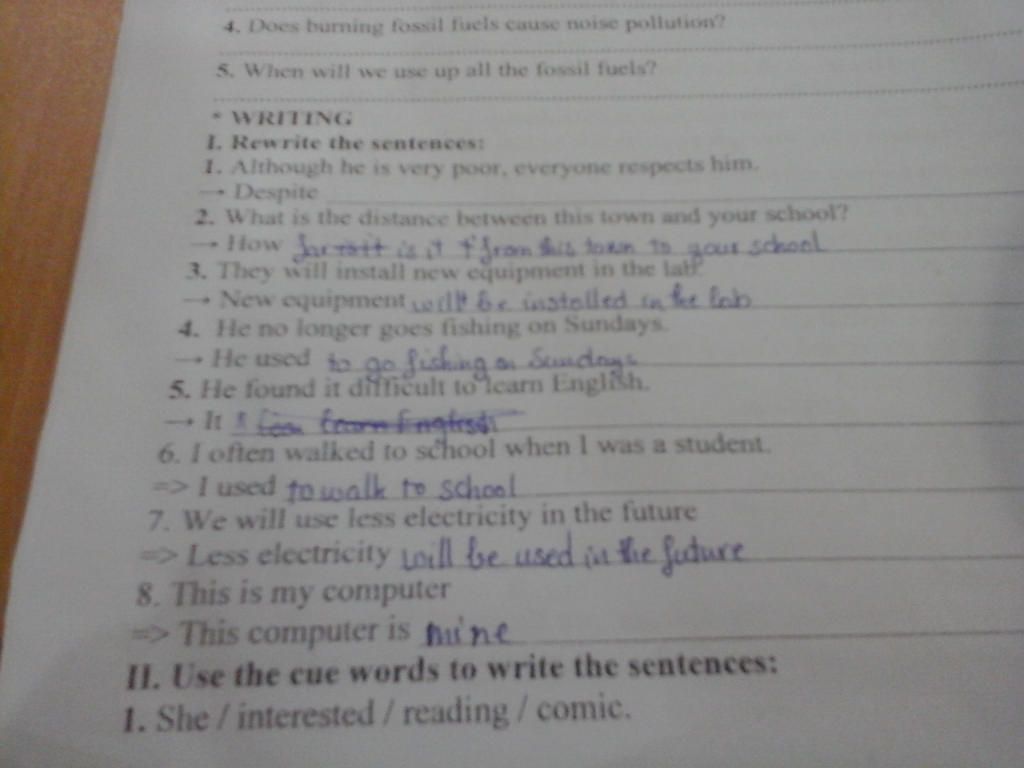 4. Does burning fossil fuels cause noise pollution?
5. When will we use up all the fossil fuels?
* WRITING
I. Rewrite the sentences:
1. Although he is very poor, everyone respects him.
→ Despite
2. What is the distance between this town and your school?
→ How far is it from this town to your school
3. They will install new equipment in the lab.
→ New equipment will be installed in the lab
4. He no longer goes fishing on Sundays.
→ He used to go fishing on Sundays
5. He found it difficult to learn English.
→ It learn English
6. I often walked to school when I was a student.
=> I used to walk to school
7. We will use less electricity in the future
=> Less electricity will be used in the future
8. This is my computer
=> This computer is mine
II. Use the cue words to write the sentences:
1. She / interested / reading / comic.